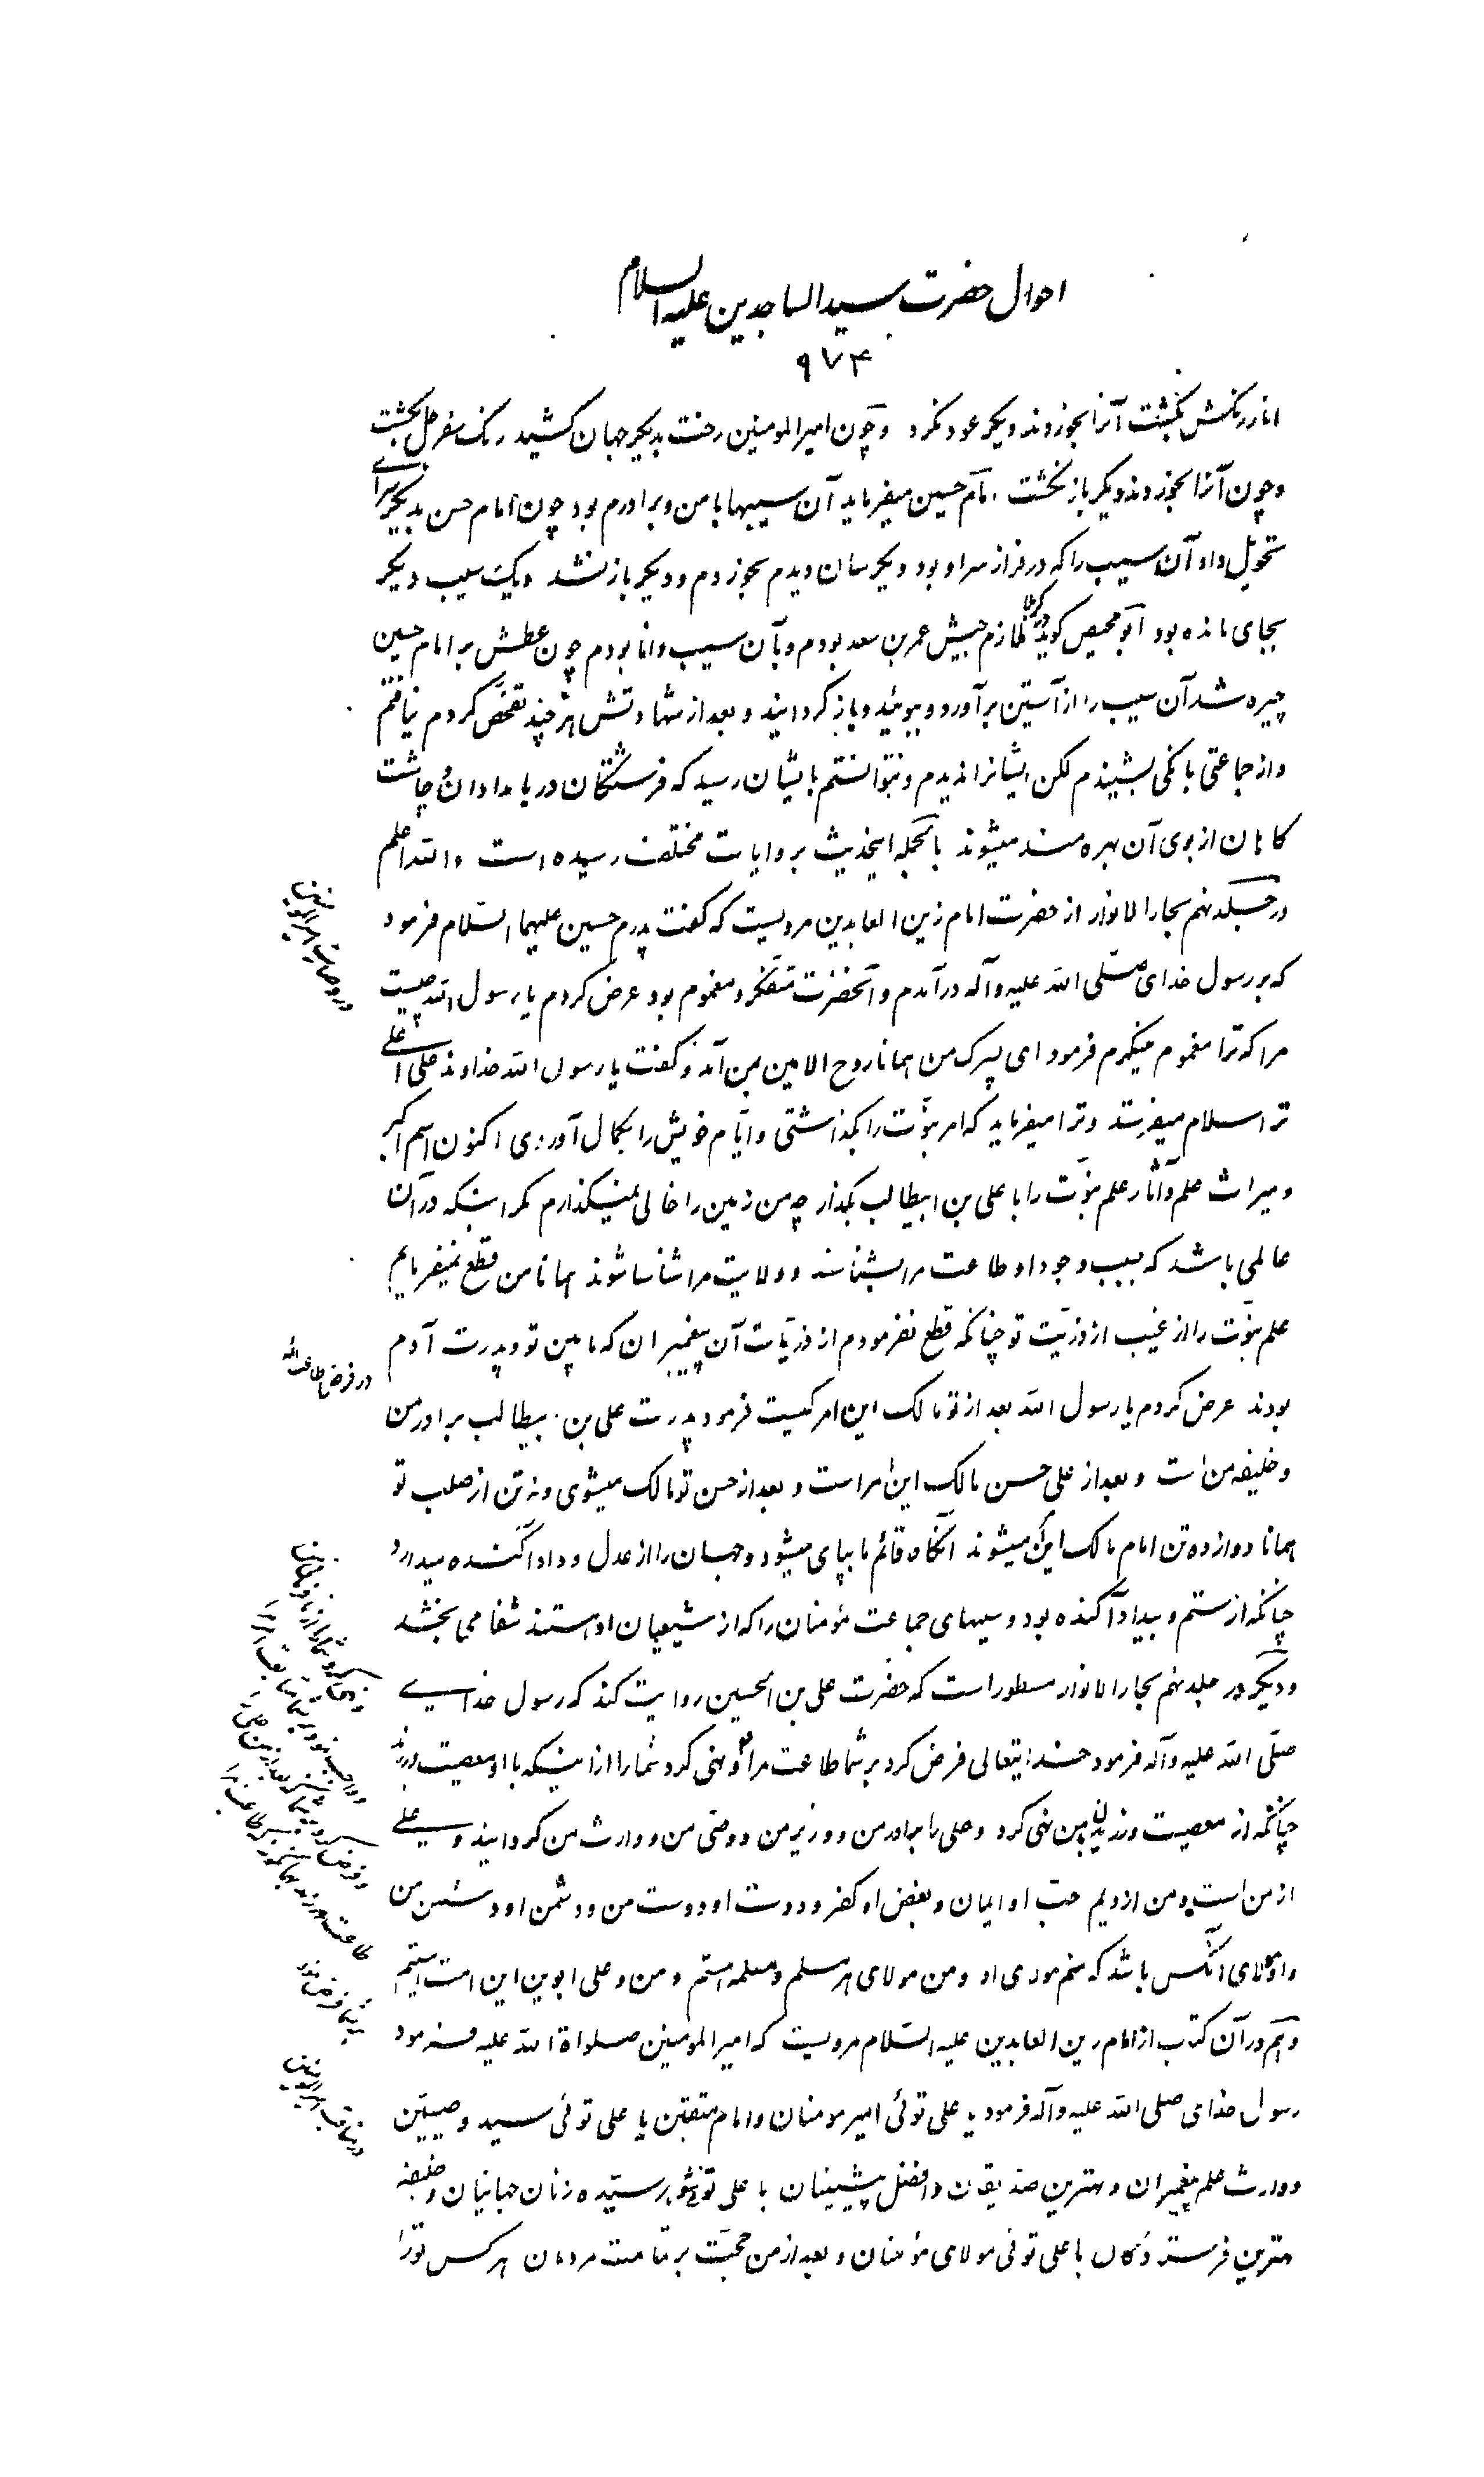 احوال حضرت سید الساجدین علیه السلام
۹۷۴
انار رنگش بگشت آنرا بخوردند و دیگر عود نکرد و چون امیر المومنین رخت بدیگر جهان کشید رنگ سفرجل بگشت
و چون آنرا بخوردند دیگر باز نگشت امام حسین میفرماید آن سیبها با من و برادرم بود چون امام حسن بدیگر سرای
تحویل داد آن سیب را که در فراز سر او بود دیگر سان دیدم بخوردم و دیگر باز نشد و یک سیب دیگر
بجای مانده بود ابو محیص گوید در کربلا ملازم جیش عمر بن سعد بودم و بآن سیب دانا بودم چون عطش بر امام حسین
چیره شد آن سیب را از آستین برآورد و ببوئید و باز گردانید و بعد از شهادتش هر چند تفحص کردم نیافتم
و از جماعتی بانگی بشنیدم لکن ایشانرا ندیدم و نتوانستم بایشان رسید که فرشتگان در بامدادان و چاشت
کاهان از بوی آن بهره مند میشوند بالجمله اینحدیث بروایات مختلف رسیده است والله اعلم
در جلد نهم بحار الانوار از حضرت امام زین العابدین مرویست که گفت پدرم حسین علیهما السلام فرمود
که بر رسول خدای صلی الله علیه و آله در آمدم و آنحضرت متفکر و مغموم بود عرض کردم یا رسول الله چیست
مرا که ترا مغموم مینگرم فرمود ای پسرک من همانا روح الامین بمن آمد و گفت یا رسول الله خداوند علی اعلی
ترا سلام میفرستد و ترا میفرماید که امر نبوت را بگذاشتی و ایام خویش را بکمال آوردی اکنون اسم اکبر
و میراث علم و آثار علم نبوت را با علی بن ابیطالب بگذار چه من زمین را خالی نمیگذارم مگر اینکه در آن
عالمی باشد که بسبب وجود او طاعت مرا بشناسند و ولایت مرا شناسا شوند همانا من قطع نمیفرمایم
علم نبوت را از غیب از ذریت تو چنانکه قطع نفرمودم از ذریات آن پیغمبران که مابین تو و پدرت آدم
بودند عرض کردم یا رسول الله بعد از تو مالک این امر کیست فرمود پدرت علی بن ابیطالب برادر من
و خلیفه من است و بعد از علی حسن مالک این امر است و بعد از حسن تو مالک میشوی و نه تن از صلب تو
همانا دوازده تن امام مالک این امر میشوند آنگاه قائم ما بپای میشود و جهان را از عدل و داد آکنده میدارد
چنانکه از ستم و بیداد آکنده بود و سینهای جماعت مؤمنان را که از شیعیان او هستند شفا می بخشد
و دیگر در جلد نهم بحار الانوار مسطور است که حضرت علی بن الحسین روایت کند که رسول خدای
صلی الله علیه و آله فرمود خدایتعالی فرض کرد بر شما طاعت مرا و نهی کرد شما را از اینکه با او معصیت ورزید
چنانکه از معصیت ورزیدن بمن نهی کرد و علی را برادر من و وزیر من و وصی من و وارث من گردانید و علی
از من است و من از ویم حب او ایمان و بغض او کفر و دوست او دوست من و دشمن او دشمن من
و او مولای آنکس باشد که منم مولای او و من مولای هر مسلم و مسلمه هستم و من و علی ابوین این امت هستیم
و هم در آن کتاب از امام زین العابدین علیه السلام مرویست که امیر المومنین صلواة الله علیه فرمود
رسول خدای صلی الله علیه و آله فرمود یا علی توئی امیر مومنان و امام متقین یا علی توئی سید وصیین
و وارث علم پیغمبران و بهترین صدیقان و افضل پیشینیان یا علی توئی شوهر سیده زنان جهانیان و خلیفه
بهترین فرستادگان یا علی توئی مولای مؤمنان و بعد از من حجت بر تمامت مردمان هر کس تو را
در وصایت امیر المومنین
در فرض طاعت الله
در مناقب امیر المومنین